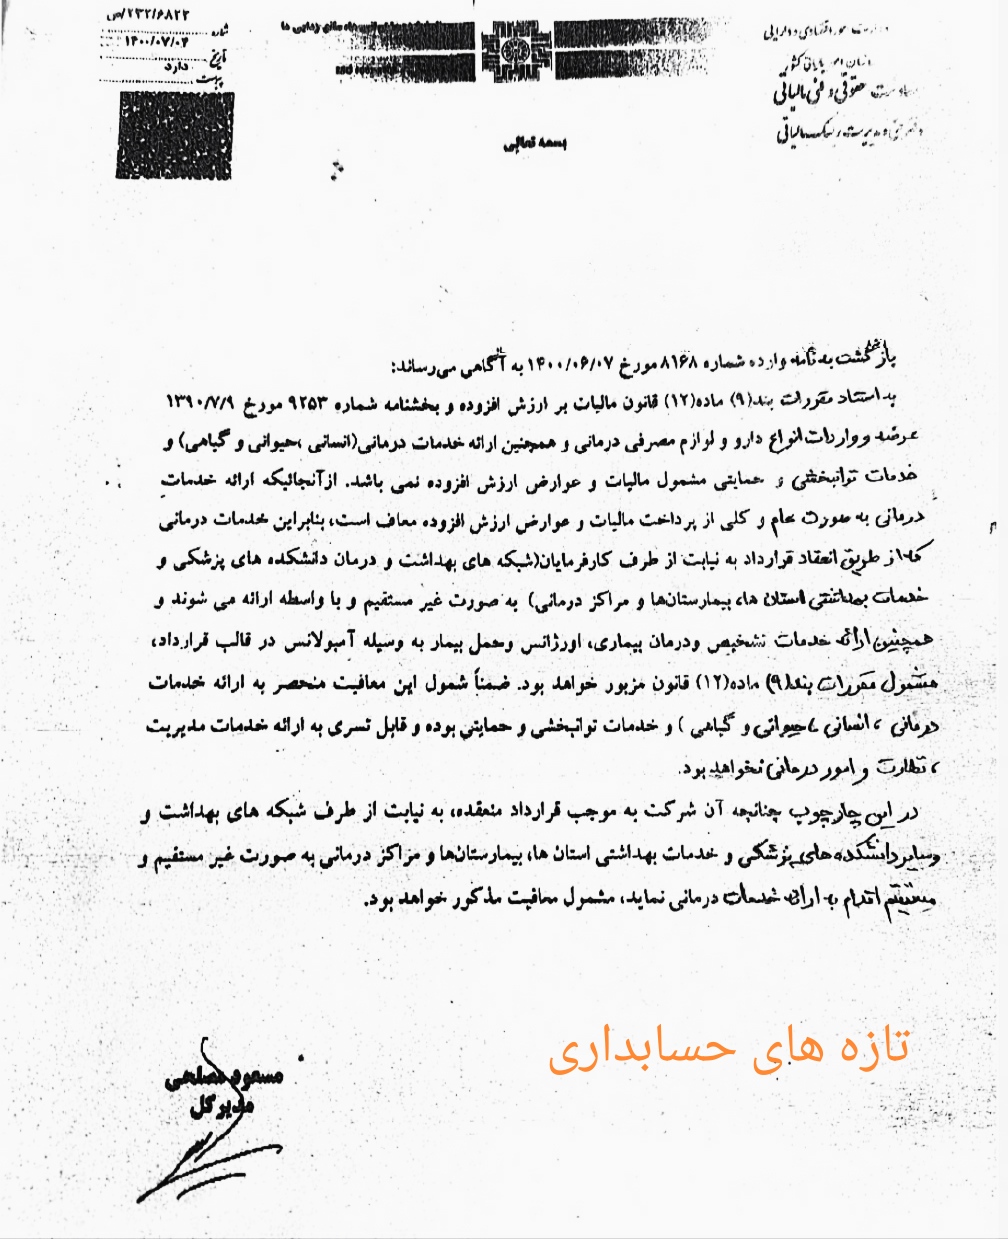 شماره ۲۳۲/۶۸۲۲/ص
تاریخ ۱۴۰۰/۰۷/۰۴
پیوست دارد
سازمان امور مالیاتی کشور
حقوقی و فنی مالیاتی
بسمه تعالی
بازگشت به نامه وارده شماره ۸۱۶۸ مورخ ۱۴۰۰/۰۶/۰۷ به آگاهی می‌رساند:
به استناد مقررات بند(۹) ماده(۱۲) قانون مالیات بر ارزش افزوده و بخشنامه شماره ۹۲۵۳ مورخ ۱۳۹۰/۷/۹
عرضه و واردات انواع دارو و لوازم مصرفی درمانی و همچنین ارائه خدمات درمانی(انسانی ،حیوانی و گیاهی) و
خدمات توانبخشی و حمایتی مشمول مالیات و عوارض ارزش افزوده نمی باشد. ازآنجائیکه ارائه خدمات
درمانی به صورت عام و کلی از پرداخت مالیات و عوارض ارزش افزوده معاف است، بنابراین خدمات درمانی
که از طریق انعقاد قرارداد به نیابت از طرف کارفرمایان(شبکه های بهداشت و درمان دانشکده های پزشکی و
خدمات بهداشتی استان ها، بیمارستان‌ها و مراکز درمانی) به صورت غیر مستقیم و با واسطه ارائه می شوند و
همچنین ارائه خدمات تشخیص ودرمان بیماری، اورژانس وحمل بیمار به وسیله آمبولانس در قالب قرارداد،
مشمول مقررات بند(۹) ماده(۱۲) قانون مزبور خواهد بود. ضمناً شمول این معافیت منحصر به ارائه خدمات
درمانی ، انسانی ،حیوانی و گیاهی ) و خدمات توانبخشی و حمایتی بوده و قابل تسری به ارائه خدمات مدیریت
، نظارت و امور درمانی نخواهد بود.
در این چارچوب چنانچه آن شرکت به موجب قرارداد منعقده، به نیابت از طرف شبکه های بهداشت و
وسایر دانشکده های پزشکی و خدمات بهداشتی استان ها، بیمارستان‌ها و مراکز درمانی به صورت غیر مستقیم و
مستقیم اقدام به ارائه خدمات درمانی نماید، مشمول معافیت مذکور خواهد بود.
تازه های حسابداری
مسعود مصلحی
مدیر کل